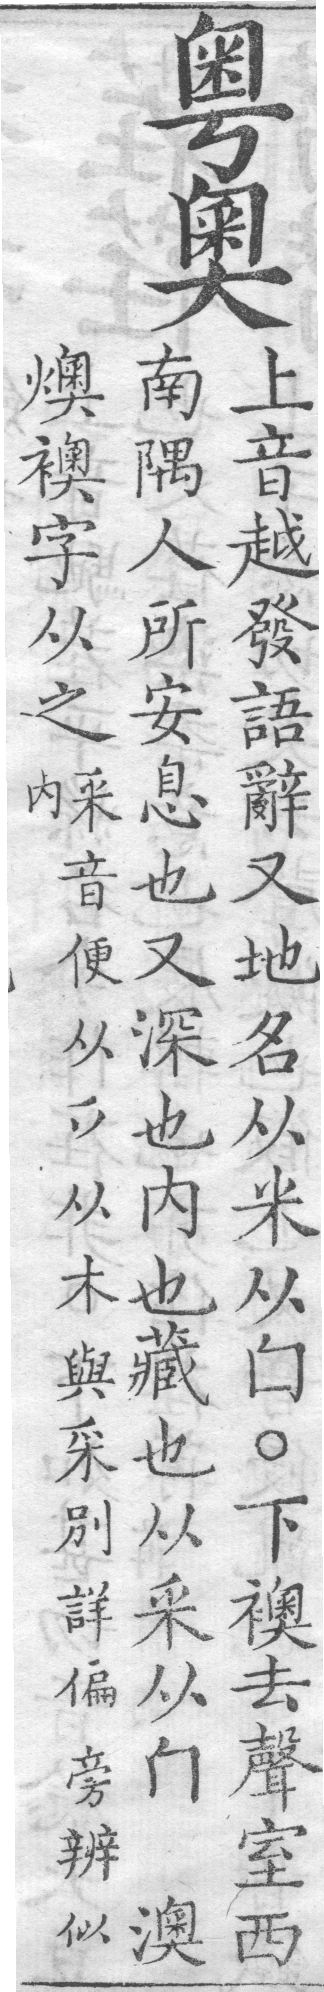 粤奧
上音越發語辭又地名从米从勹○下襖去聲室西
南隅人所安息也又深也内也藏也从釆从冂　澳
燠襖字从之
釆音便从丿从木與采別詳偏旁辨似
内